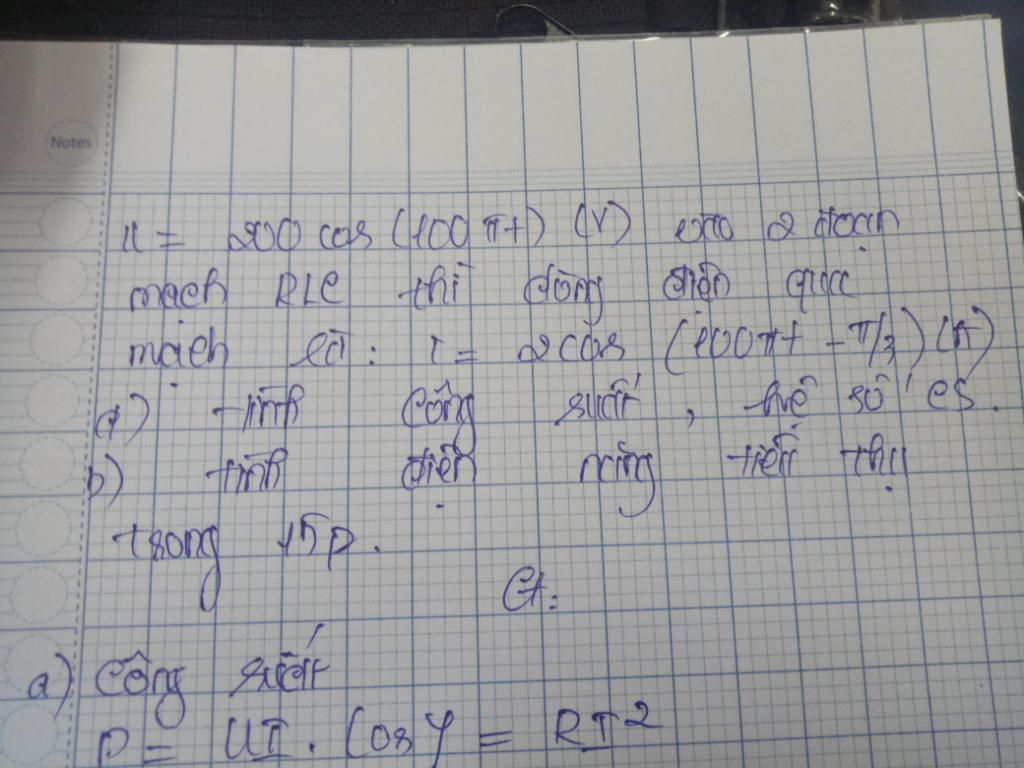 Notes
u = 200 cos (100πt) (V) vào 2 đoạn
mạch RLC thì dòng điện qua
mạch là: i = 2cos (100πt - π/3) (A)
a) tính công suất, hệ số cs.
b) tính điện năng tiêu thụ
trong 15p.
Gt:
a) công suất
P = UI. Cos φ = RI²